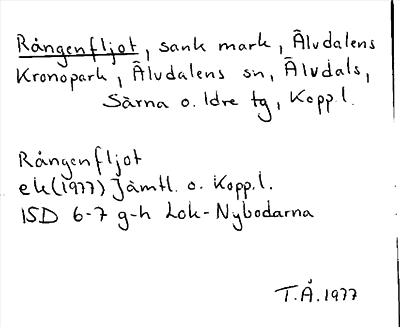 Rångenfljot, sank mark, Älvdalens
Kronopark, Älvdalens sn, Älvdals,
Särna o. Idre tg, Kopp.l.
Rångenfljot
ek(1977) Jämtl. o. Kopp.l.
ISD 6-7 g-h Lok-Nybodarna
T.Å.1977